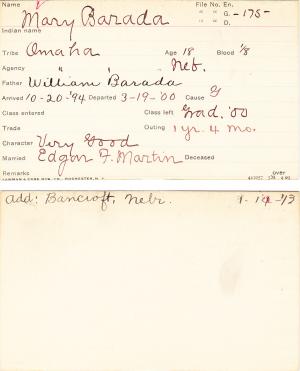 Name File No. En.
Mary Barada " " G. -175-
Indian name " " D.
Tribe Omaha Age 18 Blood 1/8
Agency " Neb.
Father William Barada
Arrived 10-20-'94 Departed 3-19-'00 Cause
Class entered Class left Grad. '00
Trade Outing 1 yr. 4 mo.
Character Very Good
Married Edgar F. Martin Deceased
Remarks over
add: Bancroft, Nebr.